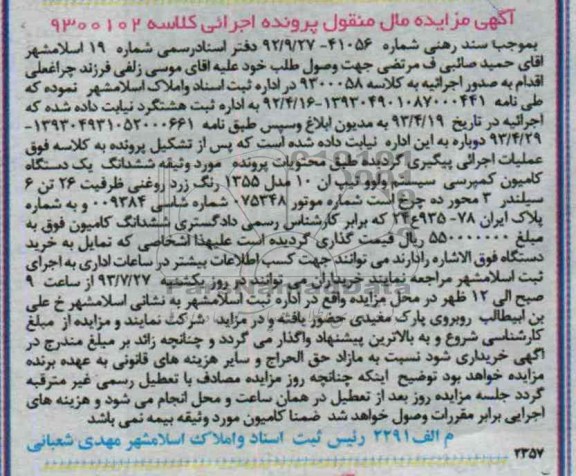 آگهی مزایده مال منقول پرونده اجرائی کلاسه ۹۳۰۰۱۰۲
بموجب سند رهنی شماره ۴۱۰۵۶-۹۲/۹/۲۷ دفتر اسنادرسمی شماره ۱۹ اسلامشهر
اقای حمید صائبی ف مرتضی جهت وصول طلب خود علیه اقای موسی زلفی فرزند چراغعلی
اقدام به صدور اجرائیه به کلاسه ۹۳۰۰۰۵۸ در اداره ثبت اسناد واملاک اسلامشهر نموده که
طی نامه ۱۳۹۳۰۴۹۰۱۰۸۷۰۰۰۴۴۱-۹۲/۴/۱۶ به اداره ثبت هشتگرد نیابت داده شده که
اجرائیه در تاریخ ۹۳/۴/۱۹ به مدیون ابلاغ وسپس طبق نامه ۱۳۹۳۰۴۹۳۱۰۵۲۰۰۰۶۶۱-
۹۳/۴/۲۹ دوباره به این اداره نیابت داده شده است که پس از تشکیل پرونده به کلاسه فوق
عملیات اجرائی پیگیری گردیده طبق محتویات پرونده مورد وثیقه ششدانگ یک دستگاه
کامیون کمپرسی سیستم ولوو تیپ ان ۱۰ مدل ۱۳۵۵ رنگ زرد روغنی ظرفیت ۲۶ تن ۶
سیلندر ۳ محور ده چرخ است شماره موتور ۰۷۵۳۴۸ شماره شاسی ۰۰۹۳۸۴ و به شماره
پلاک ایران ۷۸- ۹۳۵ع۲۴ که برابر کارشناس رسمی دادگستری ششدانگ کامیون فوق به
مبلغ ۵۵۰۰۰۰۰۰۰ ریال قیمت گذاری گردیده است علیهذا اشخاصی که تمایل به خرید
دستگاه فوق الاشاره رادارند می توانند جهت کسب اطلاعات بیشتر در ساعات اداری به اجرای
ثبت اسلامشهر مراجعه نمایند خریداران می توانند در روز یکشنبه ۹۳/۷/۲۷ از ساعت ۹
صبح الی ۱۲ ظهر در محل مزایده واقع در اداره ثبت اسلامشهر به نشانی اسلامشهر خ علی
بن ابیطالب روبروی پارک مفیدی حضور یافته و در مزایده شرکت نمایند و مزایده از مبلغ
کارشناسی شروع و به بالاترین پیشنهاد واگذار می گردد و چنانچه زائد بر مبلغ مندرج در
اگهی خریداری شود نسبت به مازاد حق الحراج و سایر هزینه های قانونی به عهده برنده
مزایده خواهد بود توضیح اینکه چنانچه روز مزایده مصادف با تعطیل رسمی غیر مترقبه
گردد جلسه مزایده روز بعد از تعطیل در همان ساعت و محل انجام می شود و هزینه های
اجرایی برابر مقررات وصول خواهد شد ضمنا کامیون مورد وثیقه بیمه نمی باشد
م الف ۲۲۹۱ رئیس ثبت اسناد واملاک اسلامشهر مهدی شعبانی
۲۳۵۷